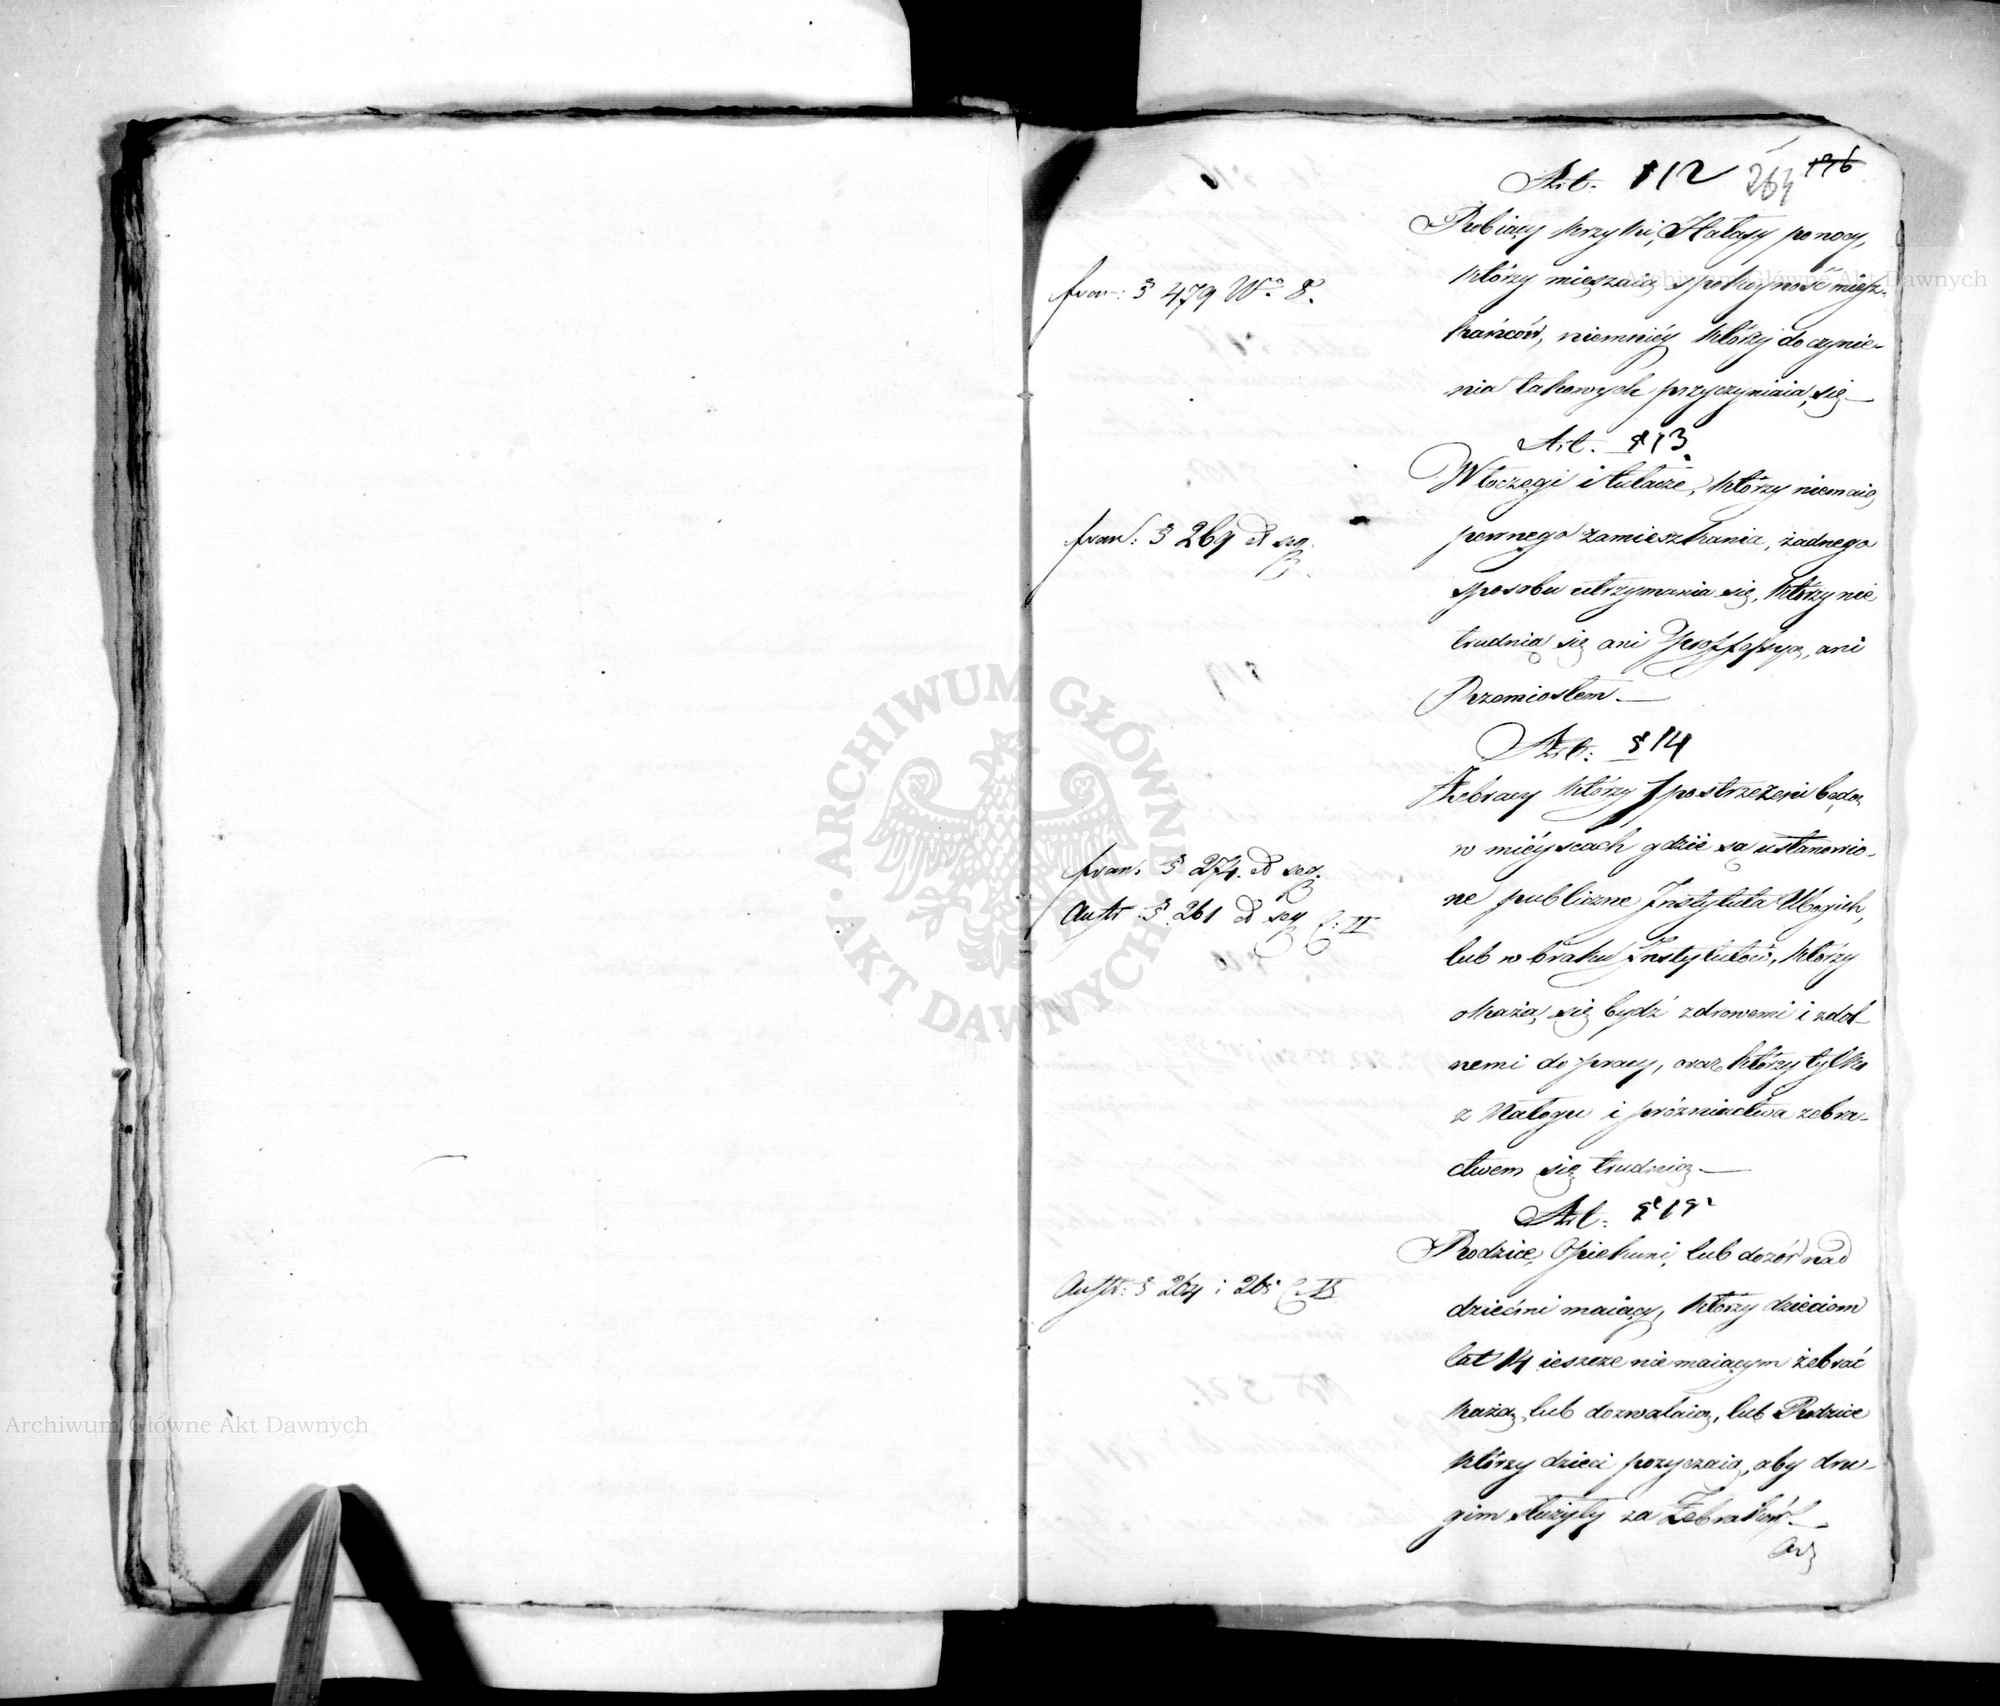 Art. 512 264 176
Robiący krzyki, Hałasy po nocy,
którzy mięszaią spokoyność miesz-
kańców, niemniéy którzy do czynie-
nia takowych przyczyniaią się —
fran: § 479 No. 8.
Art. 513.
Włoczęgi i tułacze, którzy niemaią
pewnego zamieszkania, żadnego
sposobu utrzymania się, którzy nie
trudnią się ani Proffessyą, ani
Rzemiosłem. —
fran: § 269 et seq.
Art: 514
Żebracy którzy spostrzeżeni będą
w miéyscach gdzie są ustanowio-
ne publiczne Instytuta Ubogich,
lub w braku Instytutów, którzy
okażą się bydź zdrowemi i zdol-
nemi do pracy, oraz którzy tylko
z Nałogu i próżniactwa żebra-
ctwem się trudnią. —
fran: § 274. et seq.
Austr: § 261 et seq C: II
Art: 515
Rodzice, Opiekuni, lub dozór nad
dziećmi maiący, którzy dzieciom
lat 14 ieszcze nie maiącym żebrać
każą, lub dozwalaią, lub Rodzice
którzy dzieci pożyczaią, aby dru-
gim służyły za Żebraków. —
Austr: § 264 i 265 C. II
ARCHIWUM GŁÓWNE AKT DAWNYCH
Archiwum Główne Akt Dawnych
Archiwum Główne Akt Dawnych